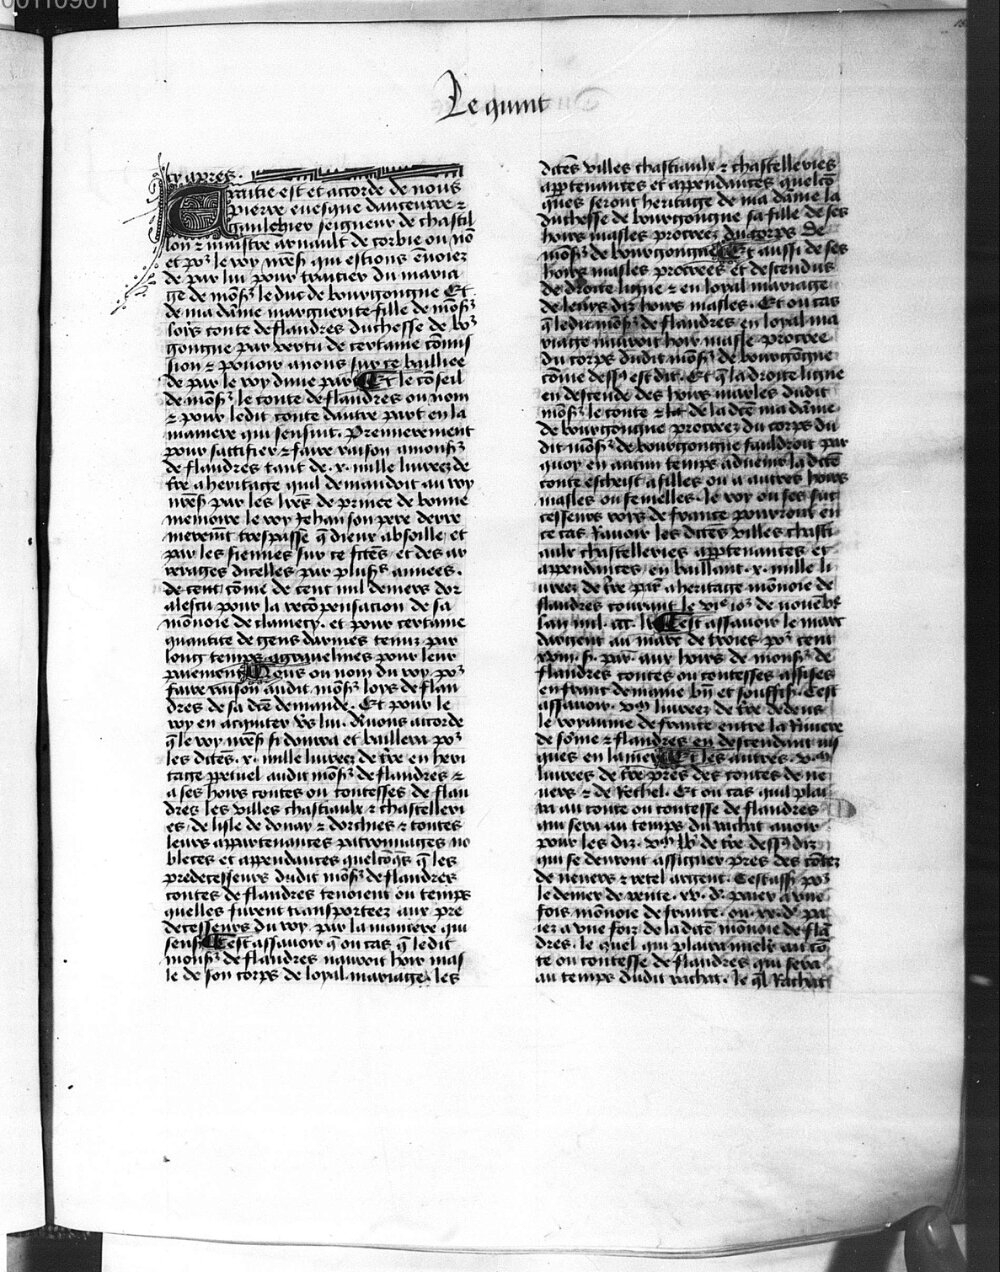 00110901
Le quint
cy apres.
Traittie est et accorde de nous
pierre euesque daucerre ⁊
gaulchier seigneur de chastil
lon ⁊ maistre arnault de corbie ou nō
et poꝛ le roy nreſ̄ qui estions enuoiez
de par lui pour traitier du maria
ge de monſ̄ le duc de bourgongne Et
de ma dame marguerite fille de monſ̄
loys conte de flandres duchesse de boꝛ
gongne par vertu de certaine cōmis
sion ⁊ pouoir a nous sur ce bailliee
de par le roy dune part Et le cōseil
de monſ̄ le conte de flandres ou nom
⁊ pour ledit conte dautre part en la
maniere qui sensuit. Premierement
pour sattiſfier ⁊ faire raison a monſ̄
de flandres tant de .x. mille liurees de
tr̄e a heritage quil demandoit au roy
nreſ̄ par les lrēs de prince de bonne
memoire le roy Jehan son pere derre
nierem̄t trespasse q̄ dieux absoille et
par les siennes sur ce fctēs et des ar
rerages dicelles par plusꝛs annees.
de cent cōme de cent mil deniers dor
a lescu pour la recōpensacion de sa
mōnoie de clamecy. et pour certaine
quantite de gens darmes tenuz par
long temps a grauelines pour leur
paiement Nous ou nom du roy poꝛ
faire raison audit monſ̄ loys de flan
dres de sa dc̄e demande. Et pour le
roy en acquiter vs̄ lui. Auons accorde
q̄ le roy nreſ̄ si donrra et baillera poꝛ
les dictes .x. mille liurees de tr̄e en heri
tage ꝑpetuel audit monſ̄ de flandres ⁊
a ses hoirs contes ou contesses de flan
dres les villes chastiaulx ⁊ chastelleri
es de lisle de douay ⁊ dorchies ⁊ toutes
leurs appartenances patronnages no
bleces et appendances quelcōq̄s q̄ les
predecesseurs dudit monſ̄ de flandres
contes de flandres tenoient ou temps
quelles furent transporteez aux pre
decesseurs du roy. par la maniere qui
sensꝛ Cest assauoir q̄ ou cas q̄ le dit
monſ̄ de flandres nauroit hoir mas
le de son corps de loyal mariage. les
dctēs villes chastiaulx ⁊ chastelleries
app̄tenances et appendances quelcō
ques seront heritage de ma dame la
duchesse de bourgongne sa fille de ses
hoirs masles procreez du corps de
monſ̄ de bourgongne Et aussi de ses
hoirs masles procrees et descendus
de droite ligne ⁊ en loyal mariage
de leurs diz hoirs masles. Et ou cas
q̄ ledit monſ̄ de flandres en loyal ma
riage nauroit hoir masle procree
du corps dudit monſ̄ de bourgōgne
cōme dessꝰ est dit. Et q̄ la droite ligne
en descende des hoirs masles dudit
monſ̄ le conte ⁊ de la dc̄e ma dame
de bourgongne procreez du corps du
dit monſ̄ de bourgongne fauldroit par
quoy en aucun temps aduenir la dc̄e
conte escheist a filles ou a autres hoirs
masles ou femelles. le roy ou ses suc
cesseurs roys de france pourront en
ce cas rauoir les dictes villes chasti
aulx chastelleries app̄tenances et
appendances en baillant .x. mille li
urees de tr̄e par̄ a heritage mōnoie de
flandres courant le vie ioꝛ de nouēbr̄
lan mil .ccc. Cest assauoir le marc
dargent au marc de troies poꝛ cent
s. par. aux hoirs de monſ̄ de
flandres contes ou contesses assises
en franc demaine bn̄ et souffisā. Cest
assauoir .vm. liurees de tr̄e dedens
le royaume de france entre la riuiere
de sōme ⁊ flandres en descendant ius
ques en la mer Et les autres .vm.
liurees de tr̄e pres des contes de ne
uers ⁊ de Rethel. Et ou cas quil plai
ra au conte ou contesse de flandres
qui sera au temps du rachat auoir
pour les diz .vm. lb̄ de tr̄e dessꝰ diz
qui se deuront assigner pres des cōtez
de neuers ⁊ retel argent. Cest assꝰ poꝛ
le denier de rente .xx. d. paier a vne
fois mōnoie de france. ou .xx. d. pa
iez a vne foiz de la dc̄e mōnoie de flā
dres. le quel qui plaira mielx au cō
te ou contesse de flandres qui sera
au temps dudit rachat. le q̄l Rachat